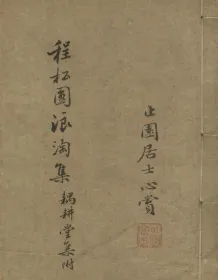 程松圓浪淘集
耦耕堂集附
止園居士心賞